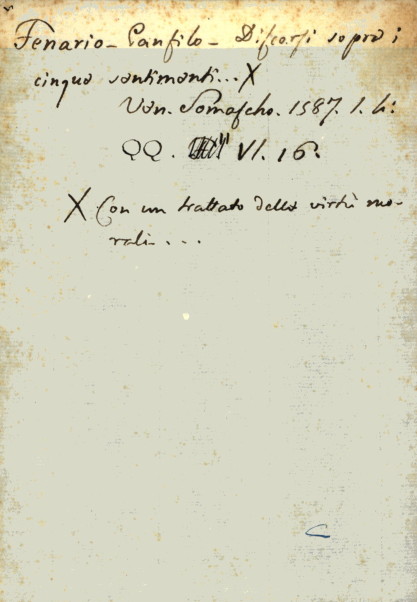 Fenario - Panfilo - Discorsi sopra i
cinque sentimenti... X
Ven. Somascho. 1587. 1. 4:
QQ. VI. 16:
X Con un trattato delle virtù mo-
rali...